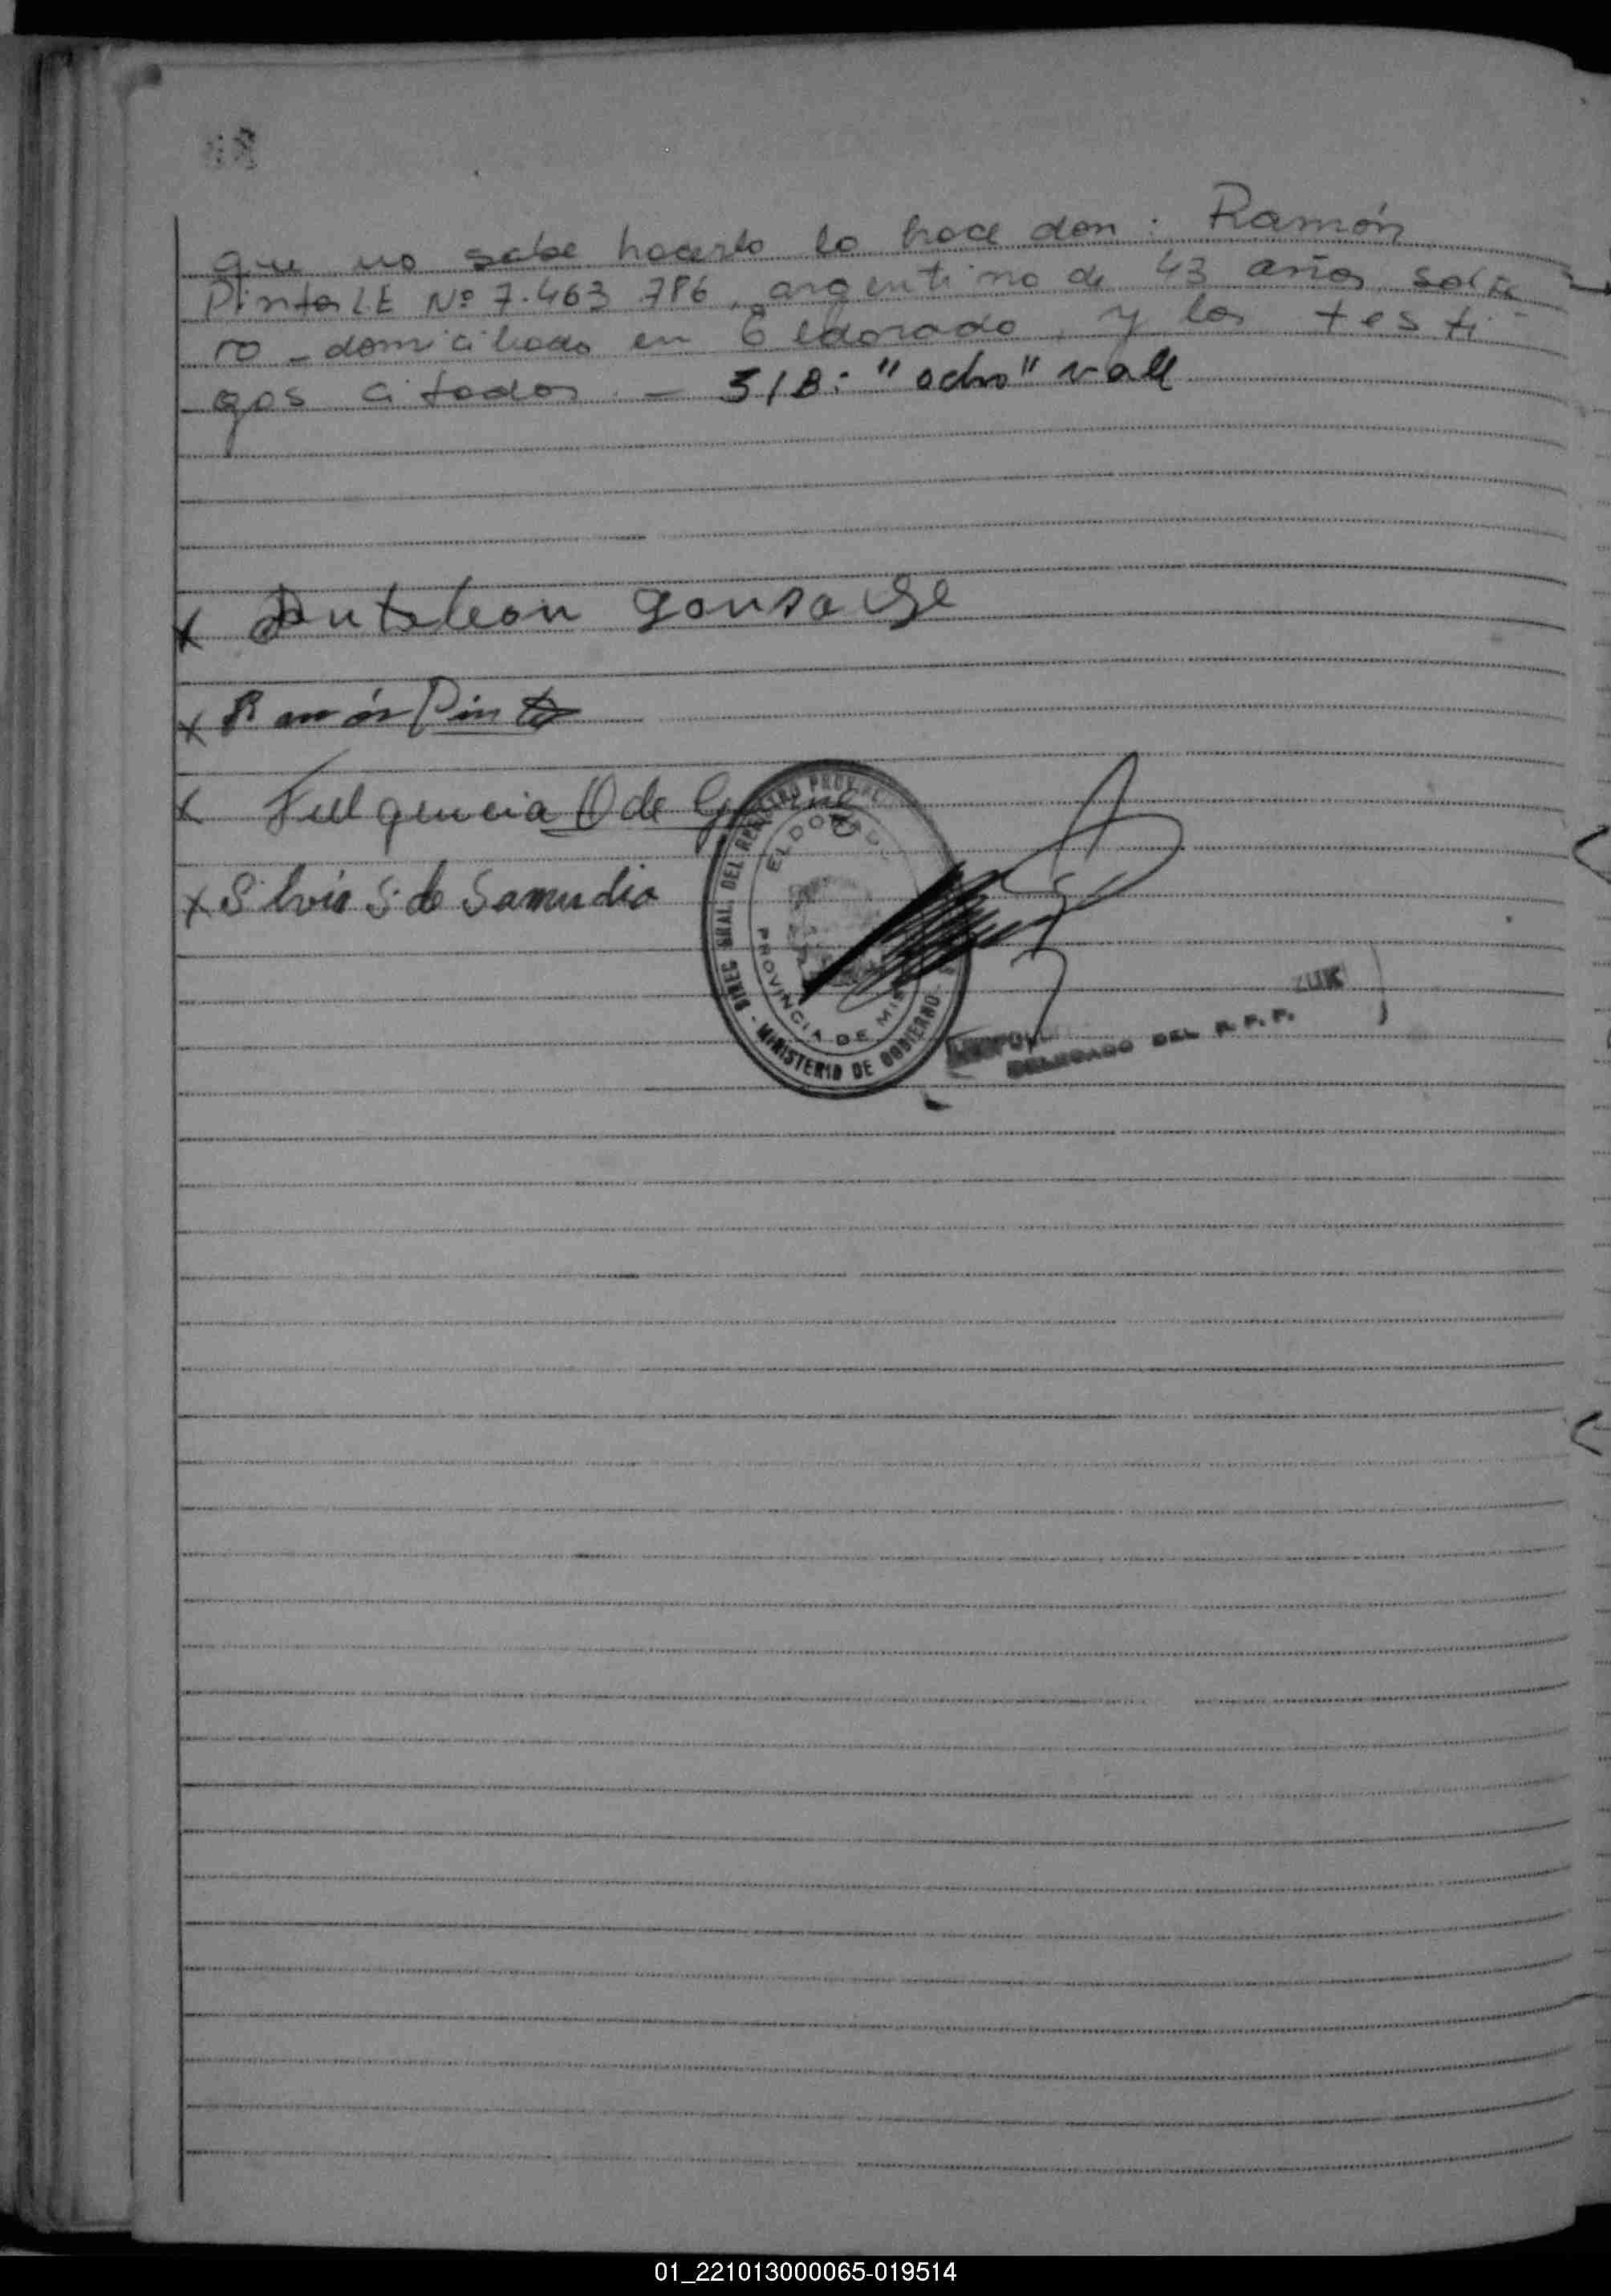 que no sabe hacerlo lo hace don: Ramón
Pinto L.E Nº 7.463.786, argentino de 43 años solte
ro - domiciliado en Eldorado, y los testi-
gos citados. - S/B: "ocho" vale
x Panteleon Gonsa
x Ramón Pinto
x Fulgencia O de
x Silvia S. de Samudio
DIREC. GRAL. DEL REGISTRO PROV.
MINISTERIO DE GOBIERNO
ELDORADO
PROVINCIA DE MIS
LEOPOL ZUK
DELEGADO DEL R. P. P.
01_221013000065-019514